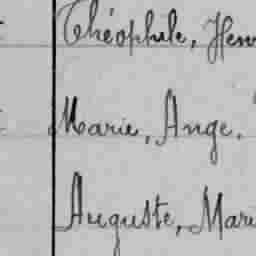 Théophile, Henr
Marie, Ange.
Auguste, Mari